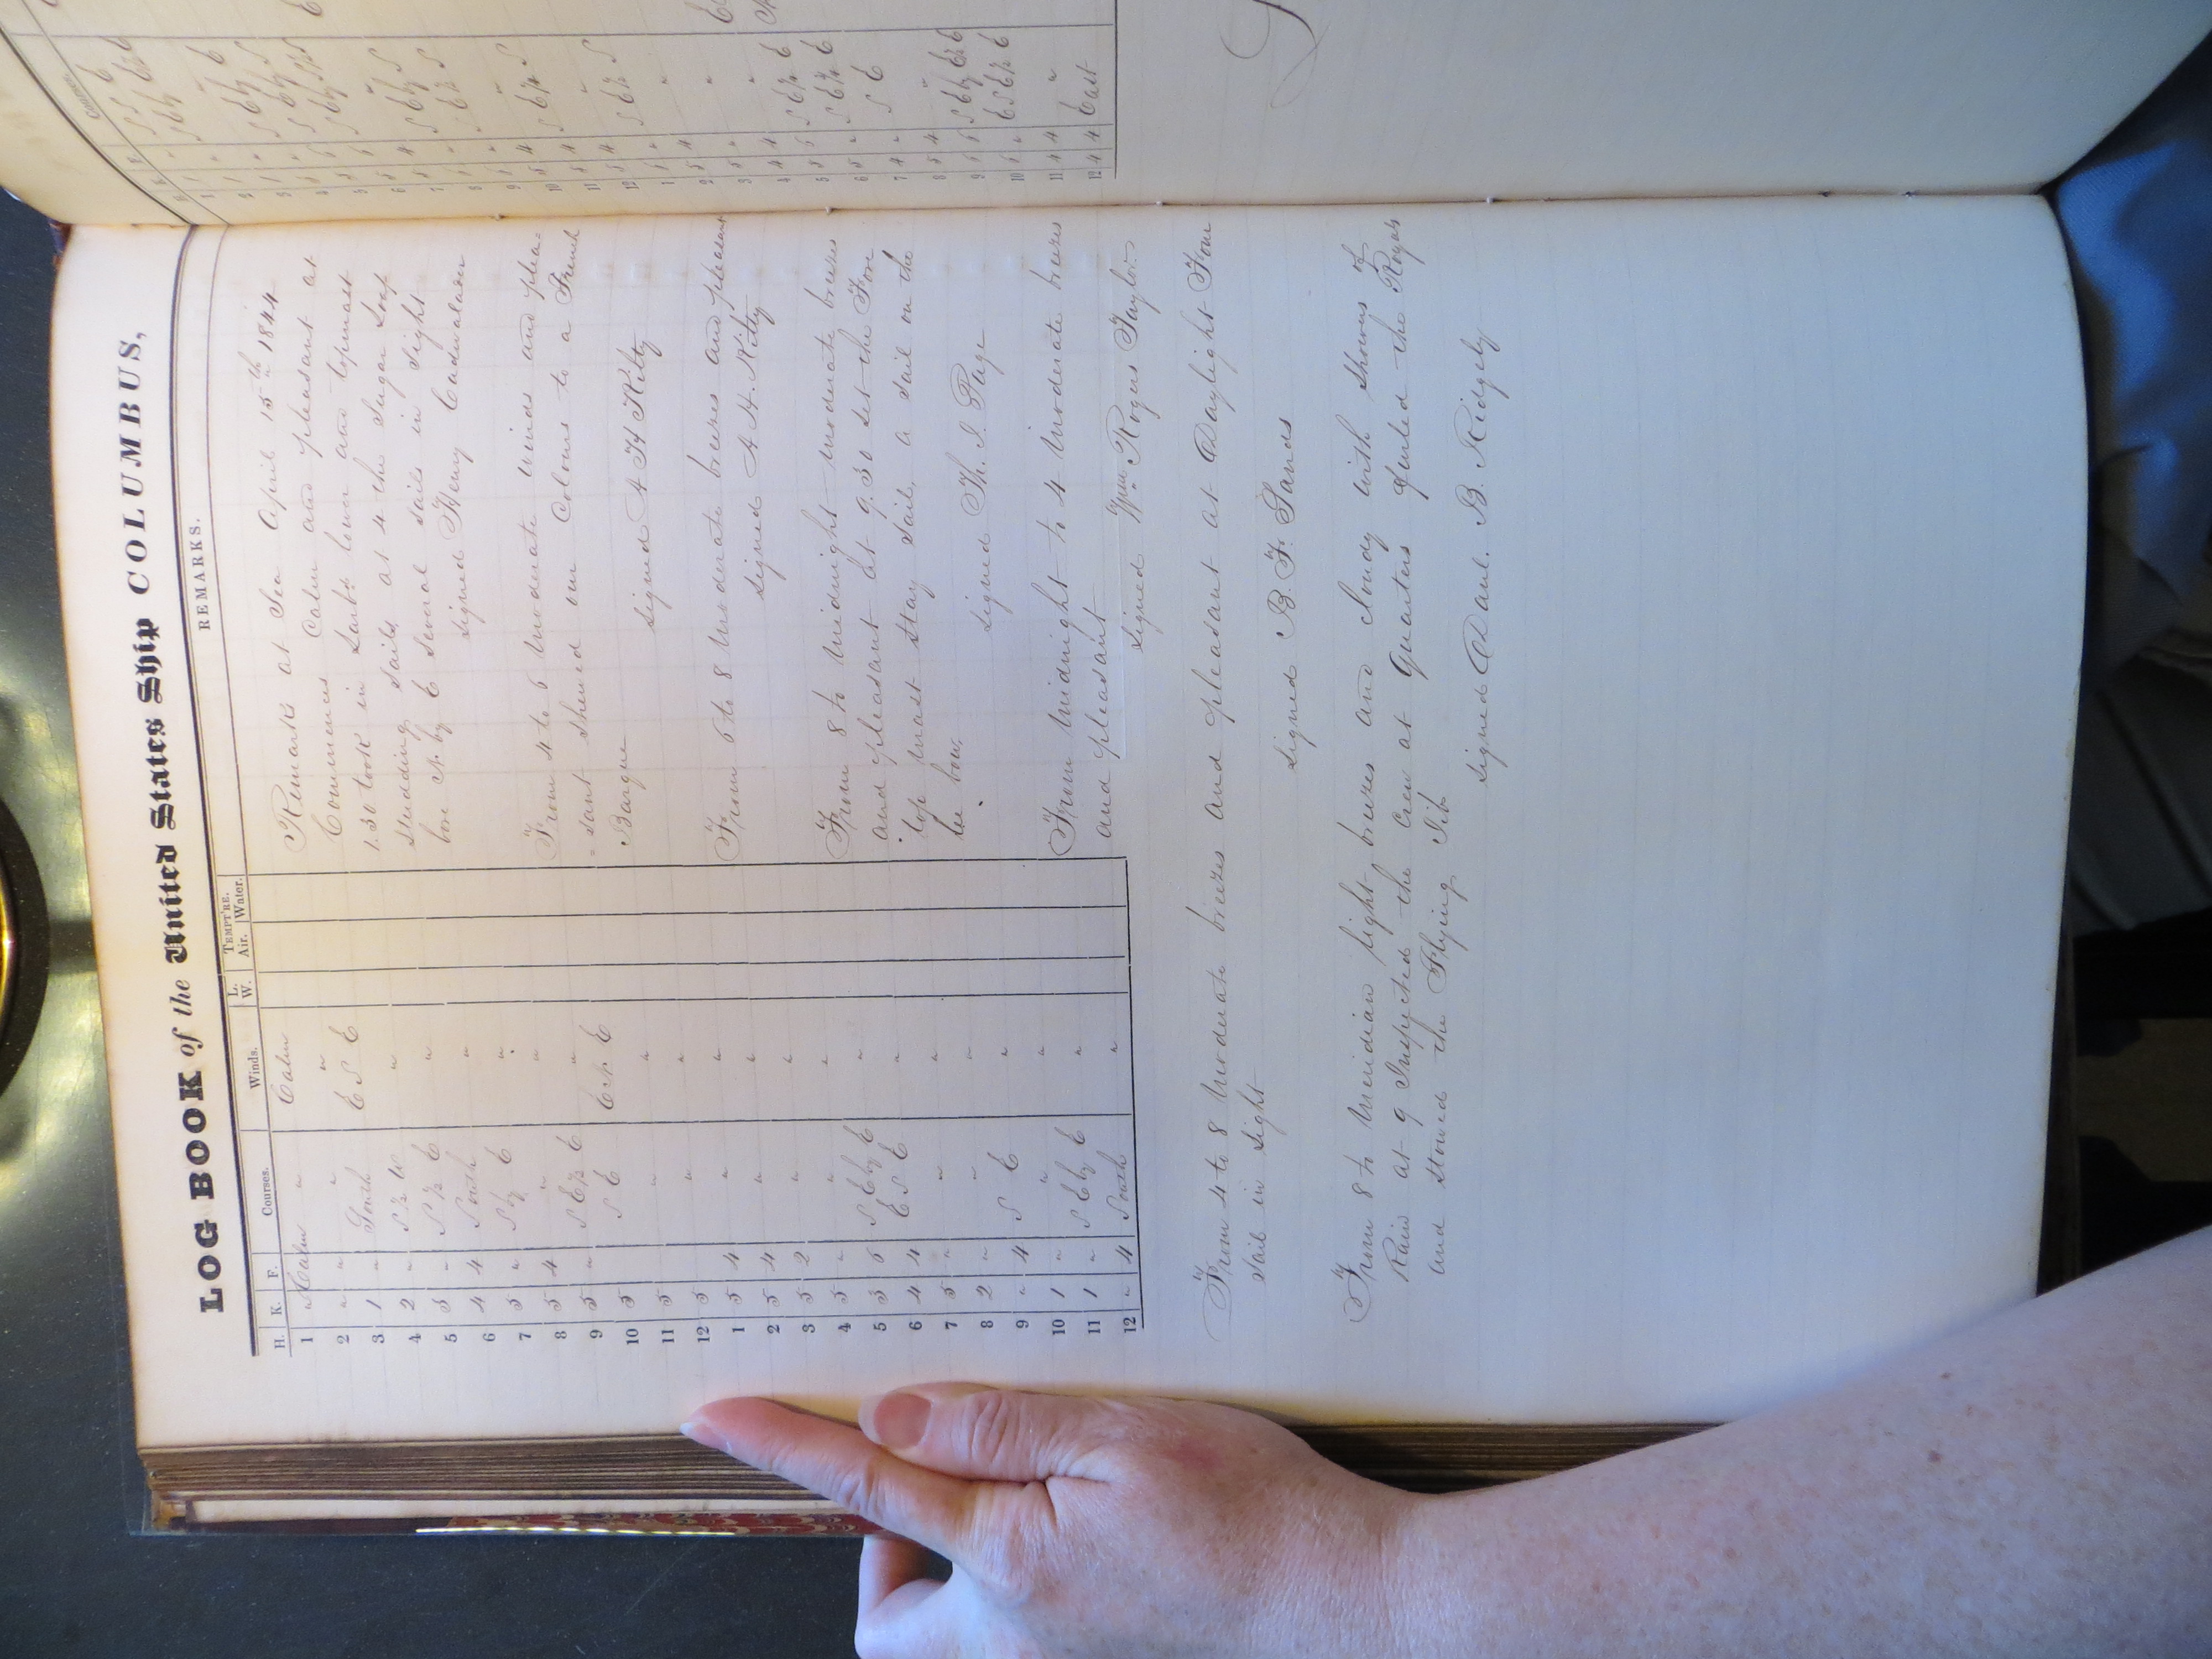 LOG BOOK of the United States Ship COLUMBUS,
H. K. F. Courses. Winds. L. W. TEMPT'RE. Air. Water. REMARKS.
Remarks at Sea April 15th 1844
Commences Calm and pleasant at
1.30 took in Larb: lower and topmast
studding sails, at 4 the Sugar Loaf
bore N. by E several sail in sight
signed Henry Cadwalader
From 4 to 6 Moderate winds and plea=
=sant shewed our Colours to a French
Barque
signed A H Kilty
From 6 to 8 Moderate breezes and pleasant
signed A. H. Kilty
From 8 to Midnight Moderate breezes
and pleasant at 9.30 set the Fore
top mast stay sail, a sail on the
lee bow.
signed Th. J. Page
From Midnight to 4 Moderate breezes
and pleasant
signed Wm. Rogers Taylor.
1 " Calm " Calm
2 " " " "
3 1 " South E S E
4 2 " S ½ W "
5 3 " S ½ E "
6 4 4 South "
7 5 " S by E "
8 5 4 " "
9 5 " S E ½ E "
10 5 S E E ½ E
11 5 " "
12 5 " "
1 5 4 " "
2 5 4 " "
3 5 2 " "
4 5 " " "
5 5 6 S E by E "
6 4 4 E S E "
7 3 " " "
8 2 " " "
9 " 4 S E "
10 1 " " "
11 1 " S E by E "
12 " 4 South "
From 4 to 8 Moderate breezes and pleasant at Daylight Four
sail in sight
signed B. F. Sands
From 8 to Meridian light breezes and cloudy with showers of
Rain at 9 Inspected the Crew at Quarters furled the Royals
and stowed the Flying Jib
signed Danl. B. Ridgely